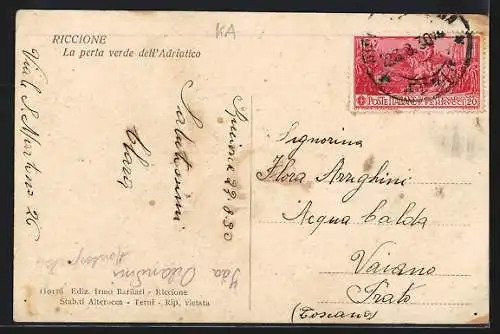 KA
RICCIONE
La perla verde dell'Adriatico
Viale S. Martino 26
29.8.30
Salutissimi
Clara
Ida Orlandini
110176 Ediz. Irmo Barilari - Riccione
Stab.ti Alterocca - Terni - Rip. vietata
POSTE ITALIANE
20
Signorina
Flora Arrighini
Acqua Calda
Vaiano
Prato
(Toscana)